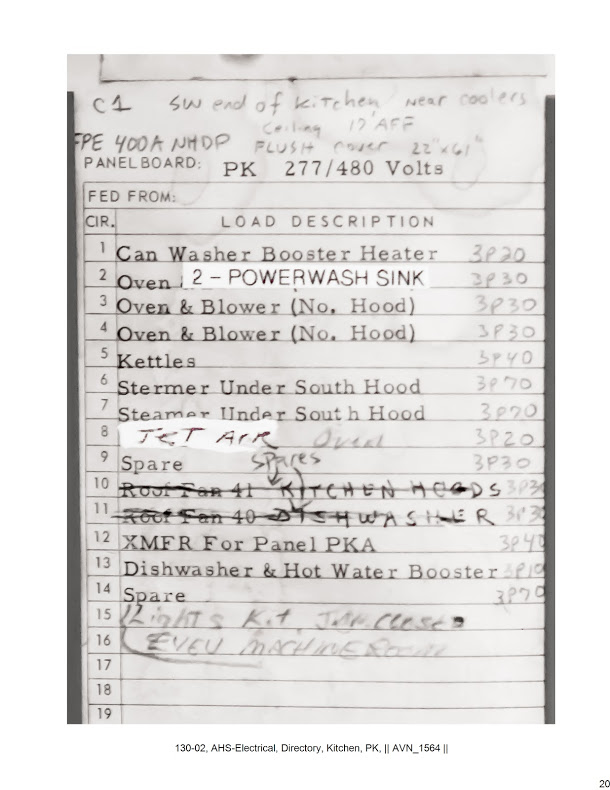 C1 SW end of kitchen near coolers
Ceiling 17'AFF
FPE 400A NHDP FLUSH cover 22"x61"
PANELBOARD: PK 277/480 Volts
FED FROM:
CIR. LOAD DESCRIPTION
1 Can Washer Booster Heater 3P20
2 Oven 2 - POWERWASH SINK 3P30
3 Oven & Blower (No. Hood) 3P30
4 Oven & Blower (No. Hood) 3P30
5 Kettles 3P40
6 Stermer Under South Hood 3P70
7 Steamer Under South Hood 3P70
8 JET AIR Oven 3P20
9 Spare Spares 3P30
10 Roof Fan 41 KITCHEN HOODS
11 Roof Fan 40 DISHWASHER 3P30
12 XMFR For Panel PKA 3P40
13 Dishwasher & Hot Water Booster
14 Spare 3P70
15 Lights Kit. Jan. Closet
16 MACHINE ROOM
17
18
19
130-02, AHS-Electrical, Directory, Kitchen, PK, || AVN_1564 ||
20